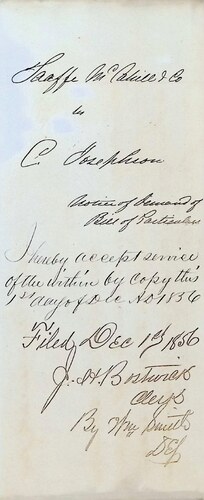 Taaffe McCahill & Co
vs
C. Josephson
Notice of Demand of
Bill of Particulars
I hereby accept service
of the within by copy this
1st day of Dec AD 1856
Filed Dec 1st 1856
J. H. Bostwick
Clerk
By Wm Smith